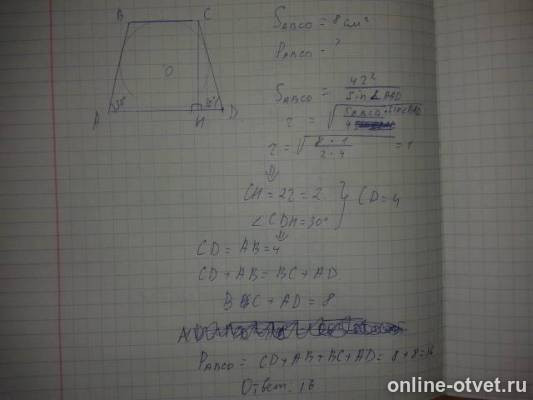 B C
O
30° 30°
A H D
S_ABCD = 8 см²
P_ABCD - ?
S_ABCD = 4r² / sin∠BAD
r = √(S_ABCD · sin∠BAD / 4)
r = √(8 · 1 / 2 · 4) = 1
⇓
CH = 2r = 2 } CD = 4
∠CDH = 30°
⇓
CD = AB = 4
CD + AB = BC + AD
BC + AD = 8
P_ABCD = CD + AB + BC + AD = 8 + 8 = 16
Ответ. 16
online-otvet.ru